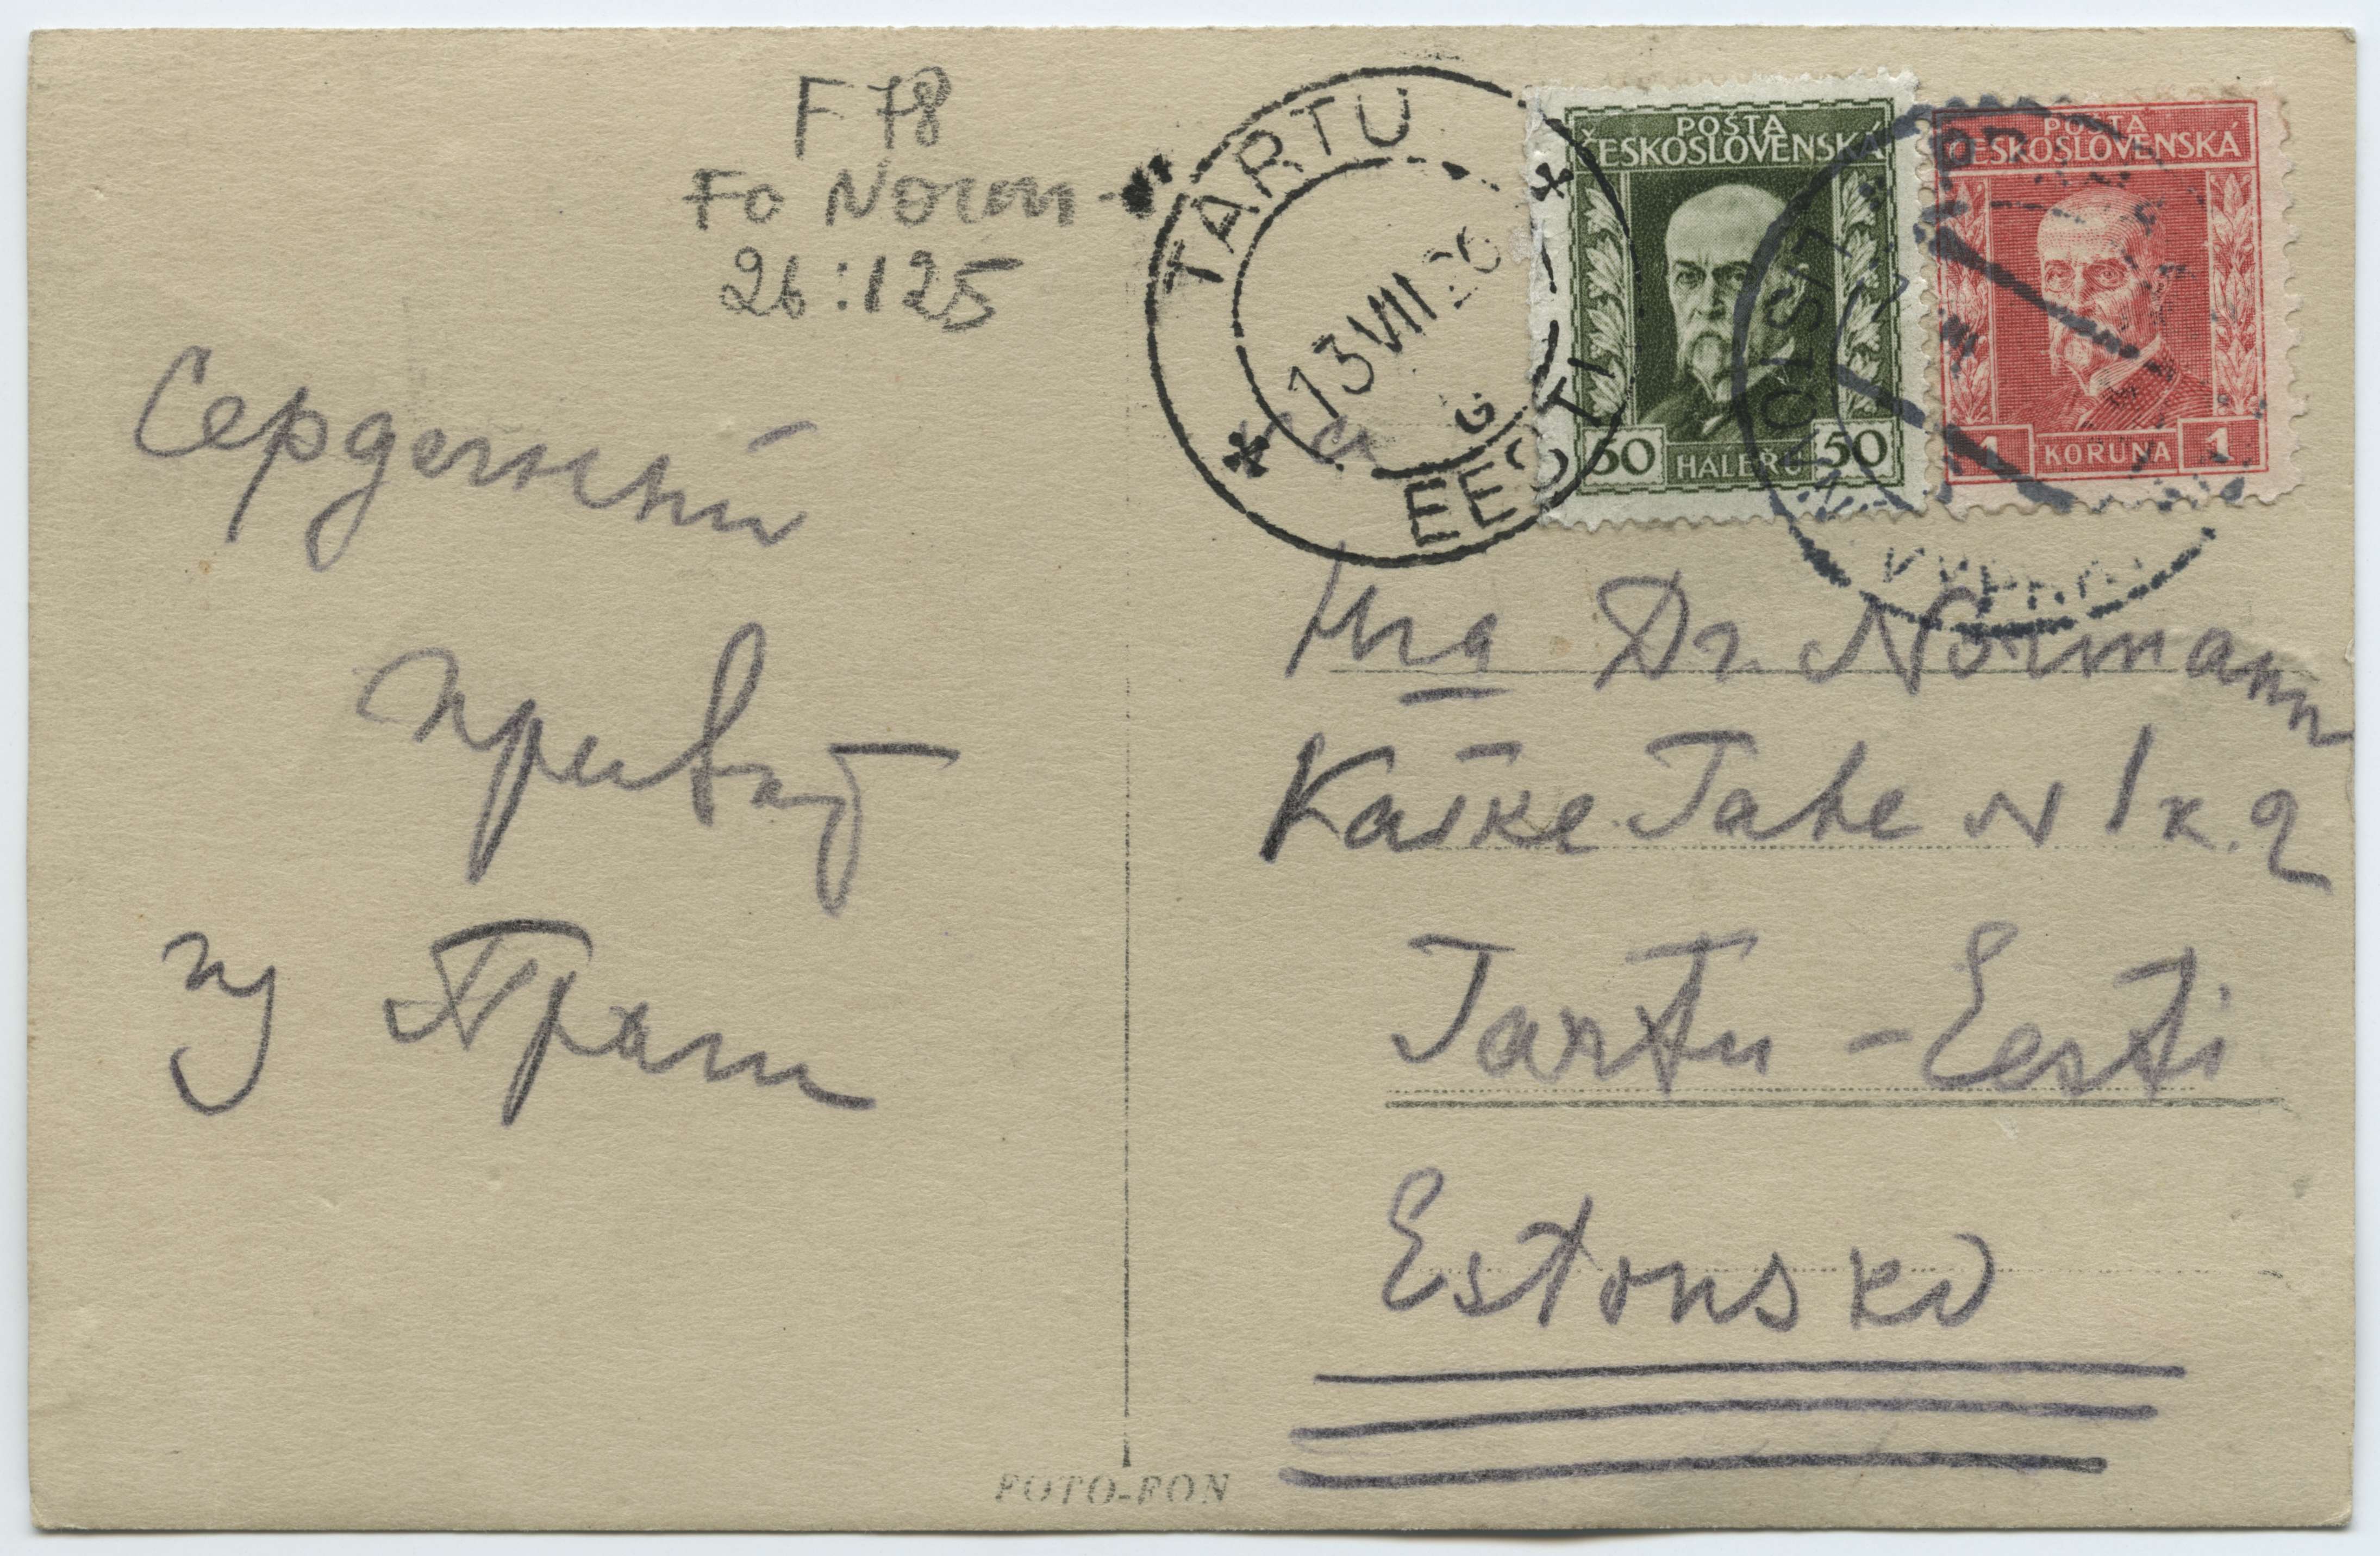 F 78
Fo Norm-
26:125
TARTU
13 VIII 26
EESTI
POŠTA
ČESKOSLOVENSKÁ
50 HALÉŘŮ 50
POŠTA
ČESKOSLOVENSKÁ
1 KORUNA 1
Сердечный
привѣт
из Праги
Dr. Normann
Tahe N 1 k. 2
Tartu - Eesti
Estonsko
FOTO-FON